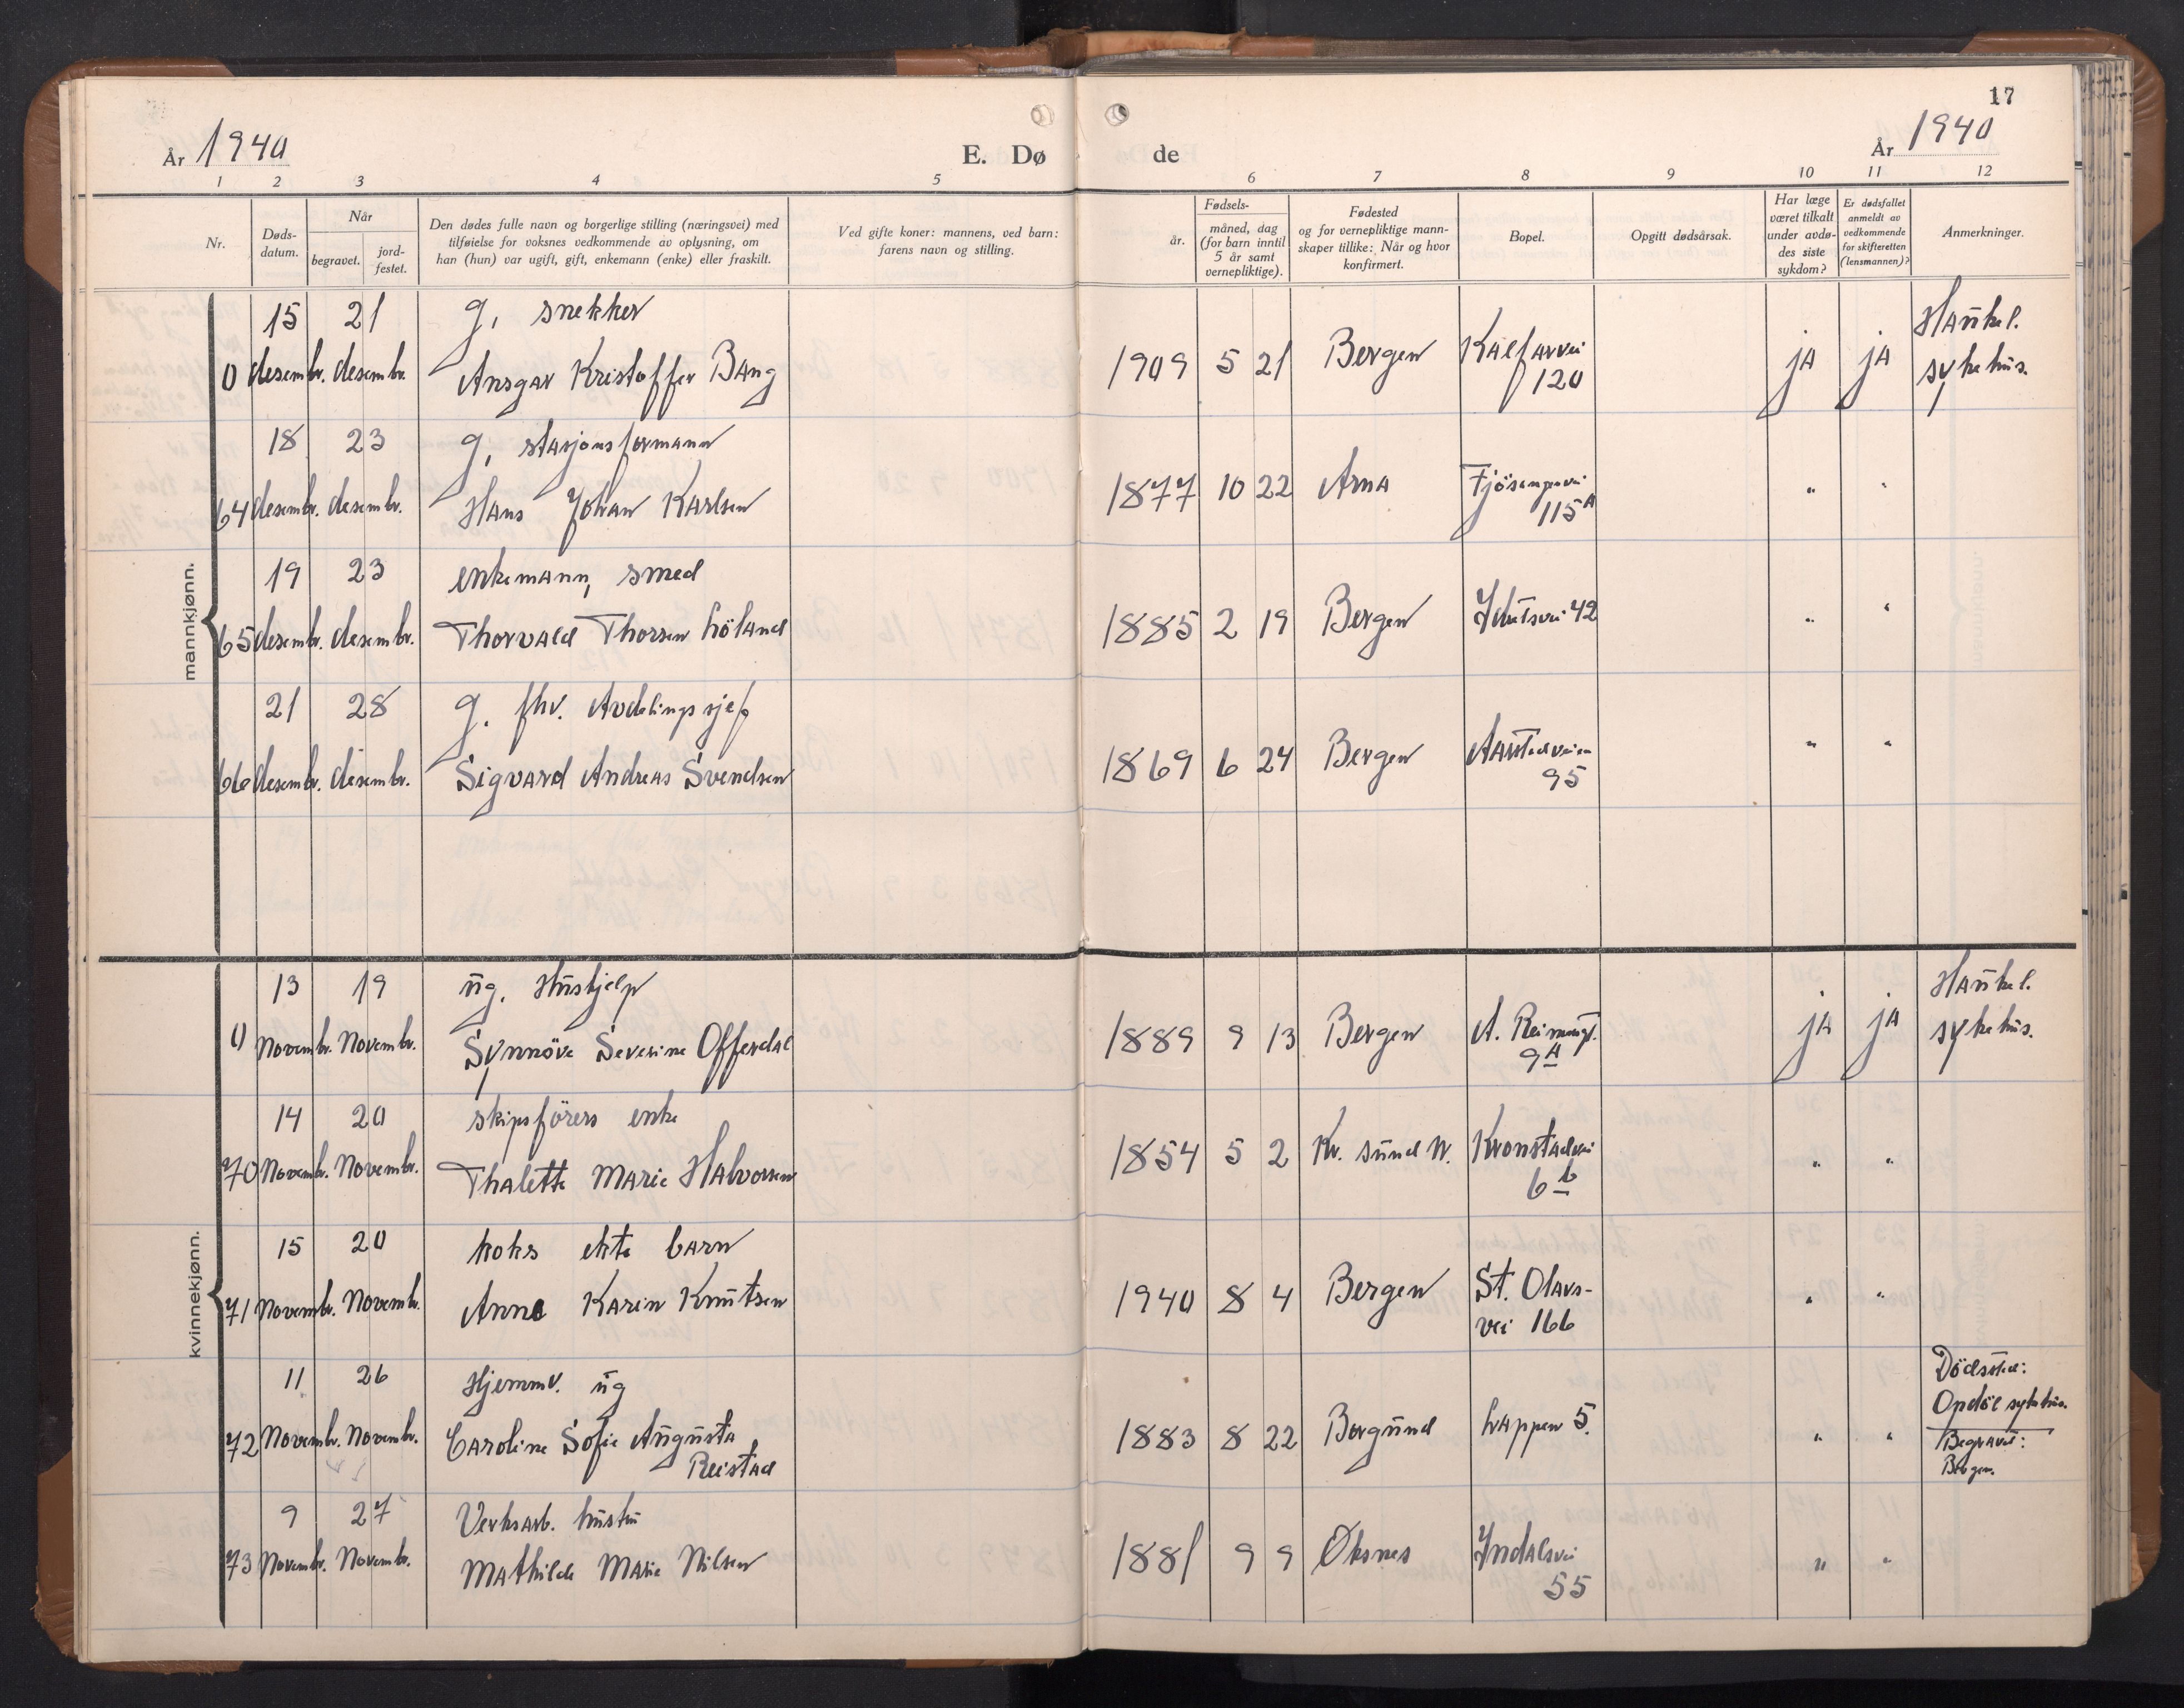 17
År 1940
E. Dø
de
År 1940
1 2 3 4 5 6 7 8 9 10 11 12
Nr.
Døds-
datum.
Når
begravet.
jord-
festet.
Den dødes fulle navn og borgerlige stilling (næringsvei) med
tilføielse for voksnes vedkommende av oplysning, om
han (hun) var ugift, gift, enkemann (enke) eller fraskilt.
Ved gifte koner: mannens, ved barn:
farens navn og stilling.
Fødsels-
år.
måned, dag
(for barn inntil
5 år samt
vernepliktige).
Fødested
og for vernepliktige mann-
skaper tillike: Når og hvor
konfirmert.
Bopel.
Opgitt dødsårsak.
Har læge
været tilkalt
under avdø-
des siste
sykdom?
Er dødsfallet
anmeldt av
vedkommende
for skifteretten
(lensmannen)?
Anmerkninger.
mannkjønn.
15 21 g, snekker Haukel.
0 desembr. desembr. Ansgar Kristoffer Bang 1909 5 21 Bergen Kalfarvei ja ja sykehus.
120
18 23 g, stasjonsformann
64 desembr. desembr. Hans Johan Karlsen 1877 10 22 Arna Fjösangervei " "
115A
19 23 enkemann, smed
65 desembr. desembr. Thorvald Thorsen Löland 1885 2 19 Bergen 42 " "
21 28 g. fhv. Avdelingssjef
66 desembr. desembr. Sigvard Andreas Svendsen 1869 6 24 Bergen Aarstadveien " "
95
kvinnekjønn.
13 19 ug. Hushjelp Haukel.
0 Novembr. Novembr. Synnöve Severine Offerdal 1889 9 13 Bergen A. ja ja sykehus.
9A
14 20 skipsförers enke
70 Novembr. Novembr. Thalette Marie Halvorsen 1854 5 2 Kr. sund N. Kronstadvei " "
6b
15 20 koks ekte barn
71 Novembr. Novembr. Anna Karin Knutsen 1940 8 4 Bergen St. Olavs- " "
vei 166
11 26 Hjemmv. ug Dödssted:
Opdöl sykehus.
72 Novembr. Novembr. Caroline Sofie Augusta 1883 8 22 Borgund Lappen 5. " " Begravet:
Reistad Bergen.
9 27 Verksarb. hustru
73 Novembr. Novembr. Mathilde Marie Nilsen 1881 9 9 Øksnes Yndalsvei " "
55